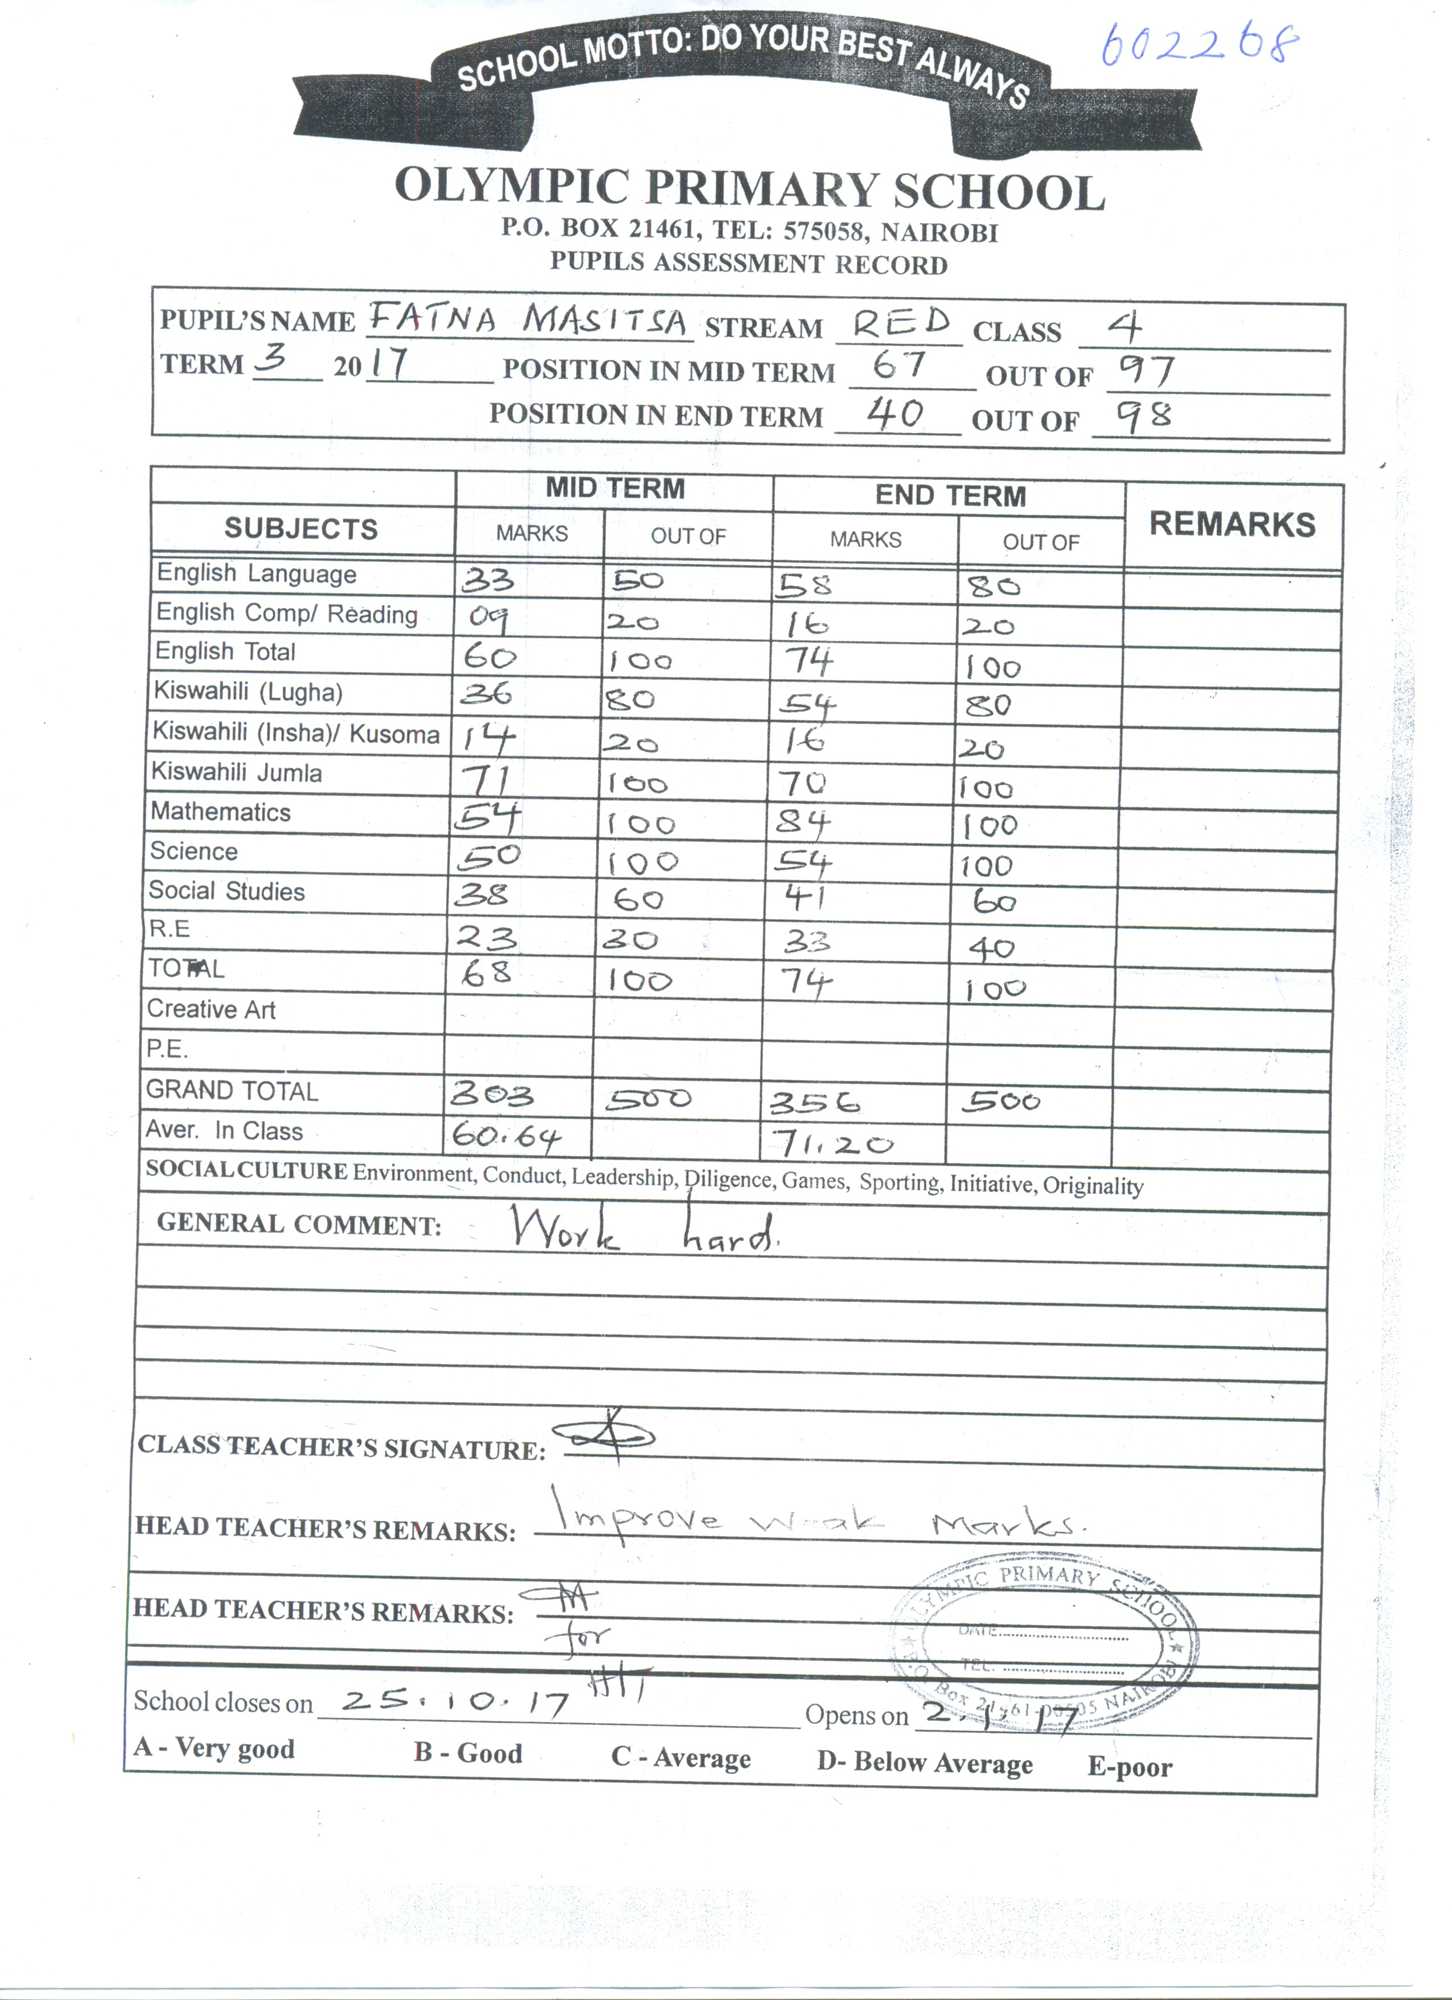 602268
SCHOOL MOTTO: DO YOUR BEST ALWAYS
OLYMPIC PRIMARY SCHOOL
P.O. BOX 21461, TEL: 575058, NAIROBI
PUPILS ASSESSMENT RECORD
PUPIL'S NAME FATNA MASITSA STREAM RED CLASS 4
TERM 3 2017 POSITION IN MID TERM 67 OUT OF 97
POSITION IN END TERM 40 OUT OF 98
MID TERM END TERM REMARKS
SUBJECTS MARKS OUT OF MARKS OUT OF
English Language 33 50 58 80
English Comp/ Reading 09 20 16 20
English Total 60 100 74 100
Kiswahili (Lugha) 36 80 54 80
Kiswahili (Insha)/ Kusoma 14 20 16 20
Kiswahili Jumla 71 100 70 100
Mathematics 54 100 84 100
Science 50 100 54 100
Social Studies 38 60 41 60
R.E 23 30 33 40
TOTAL 68 100 74 100
Creative Art
P.E.
GRAND TOTAL 303 500 356 500
Aver. In Class 60.64 71.20
SOCIAL CULTURE Environment, Conduct, Leadership, Diligence, Games, Sporting, Initiative, Originality
GENERAL COMMENT: Work hard.
CLASS TEACHER'S SIGNATURE:
HEAD TEACHER'S REMARKS: Improve weak marks.
OLYMPIC PRIMARY SCHOOL
HEAD TEACHER'S REMARKS:
for
H/T
DATE
TEL.
P.O. Box 21461-00505 NAIROBI
School closes on 25.10.17 Opens on 2.1.17
A - Very good B - Good C - Average D- Below Average E-poor